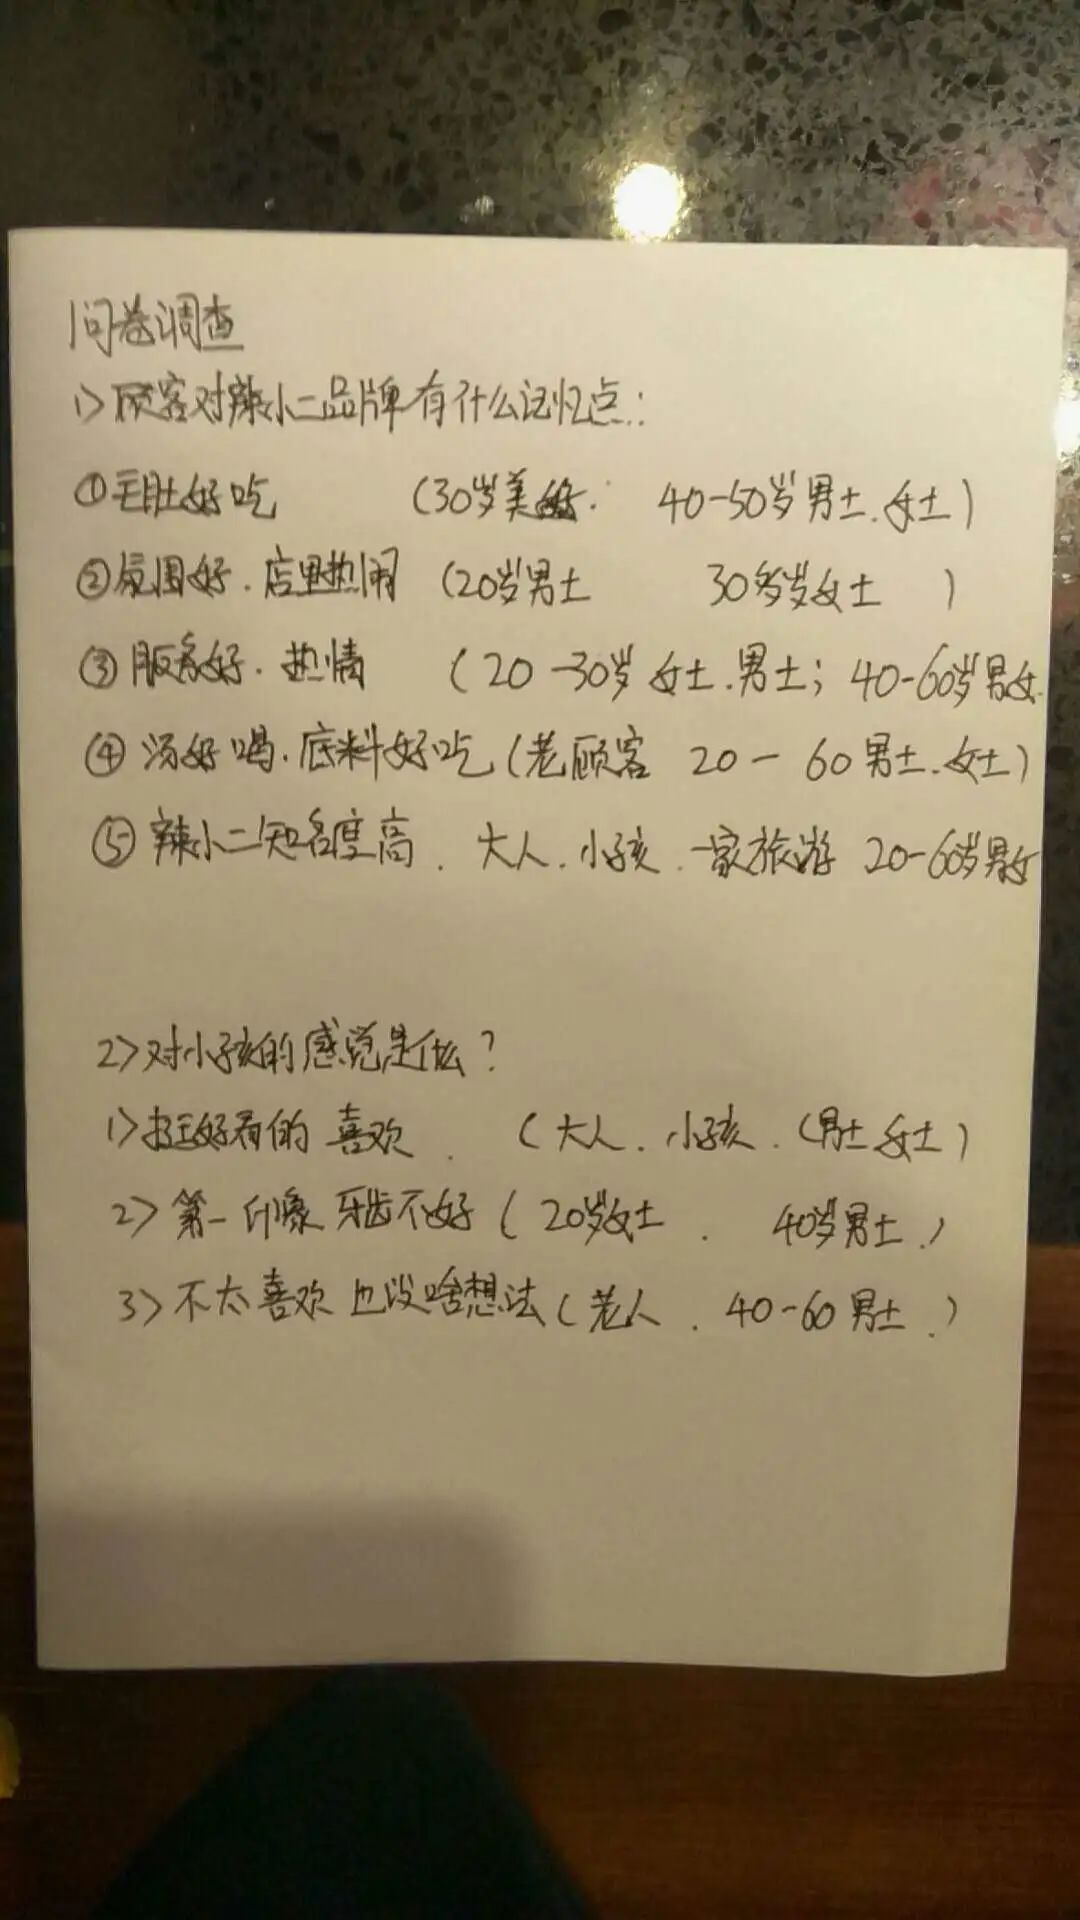 问卷调查
1>顾客对辣小二品牌有什么记忆点:
①毛肚好吃 (30岁美 40-50岁男士.女士)
②氛围好.店里热闹 (20岁男士 30多岁女士 )
③服务好.热情 (20-30岁女士.男士; 40-60岁男女
④汤好喝.底料好吃(老顾客 20-60男士.女士)
⑤辣小二知名度高.大人.小孩.一家旅游 20-60岁男女
2>对小孩的感觉是什么?
1>挺好看的 喜欢. (大人.小孩.(男士女士)
2>第一印象 牙齿不好(20岁女士. 40岁男士.)
3>不太喜欢 也没啥想法(老人. 40-60男士.)